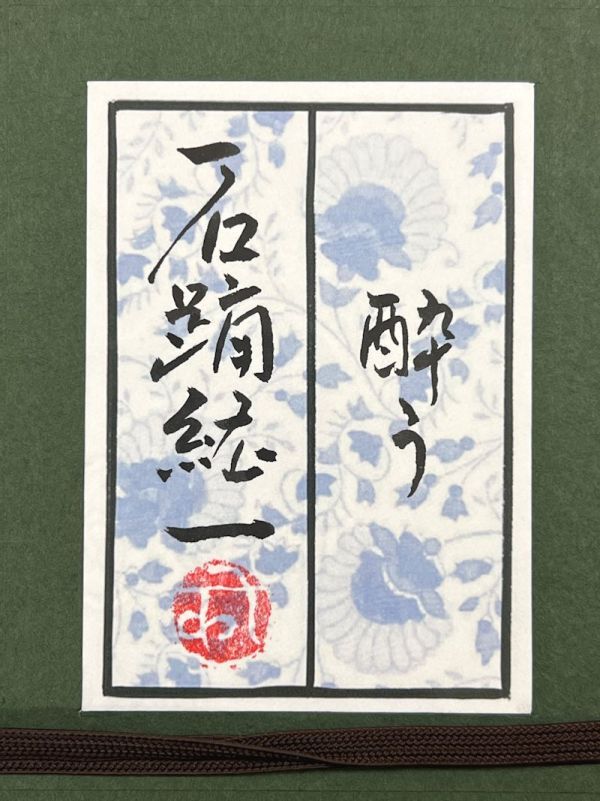 酔う
石踊紘一